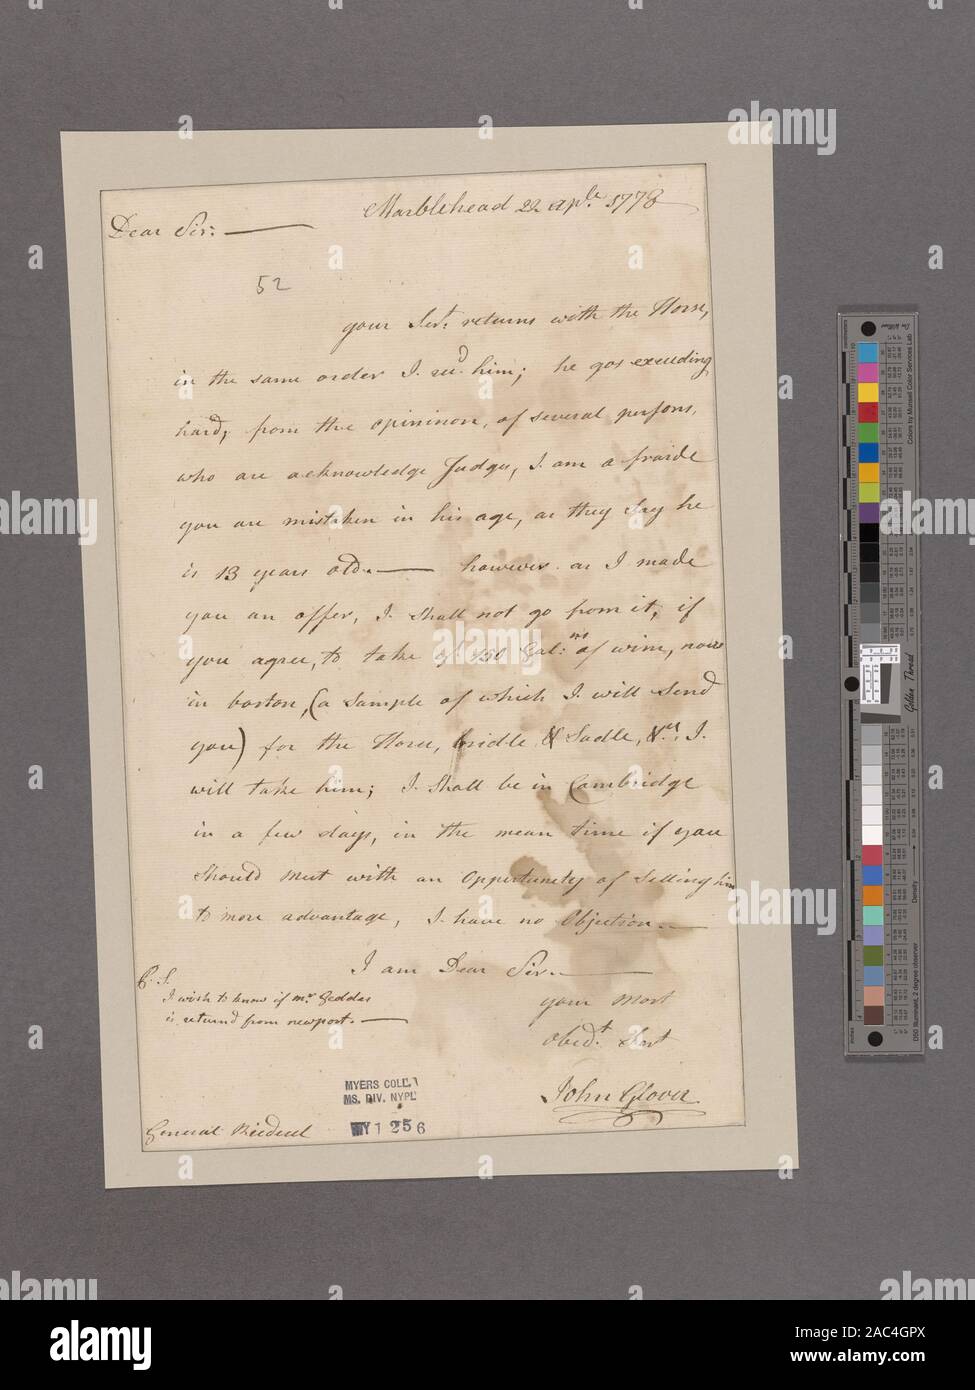 Marblehead 22 aple. 1778
Dear Sir:
52
your Sert. returns with the Horse,
in the same order I recd. him; he gos exceeding
hard, from the opininon, of several persons,
who are acknowledge Judges, I am a fraide
you are mistaken in his age, as they say he
is 13 years old.— however as I made
you an offer, I shall not go from it, if
you agree, to take of 150 Galns. of wine, now
in boston, (a sample of which I will send
you) for the Horse, bridle & Sadle, &c., I
will take him; I shall be in Cambridge
in a few days, in the mean time if you
should meet with an oppertunety of selling him
to more advantage, I have no objection.—
I am Dear Sir.—
your most
obedt. Sert
John Glover
P.S.
I wish to know if mr Geddes
is returnd from newport.—
General Riedesel
MYERS COLL.
MS. DIV. NYPL
MY 1256
alamy
Image ID: 2AC4GPX
www.alamy.com